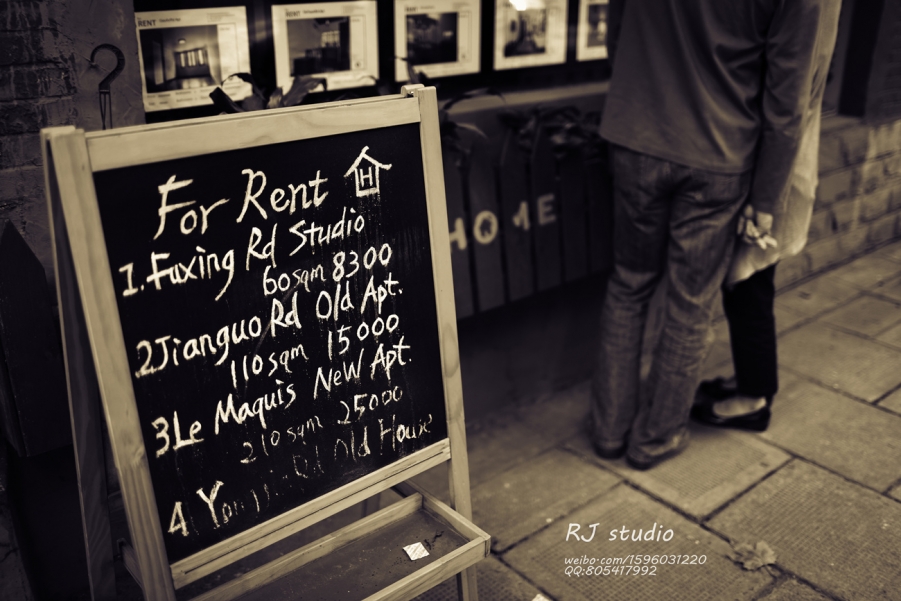 For Rent
1.Fuxing Rd Studio
60sqm 8300
2Jianguo Rd Old Apt.
110sqm 15000
3Le Maquis New Apt.
210sqm 25000
4 Rd Old House
HOME
RENT
RENT
RJ studio
weibo.com/1596031220
QQ:805417992